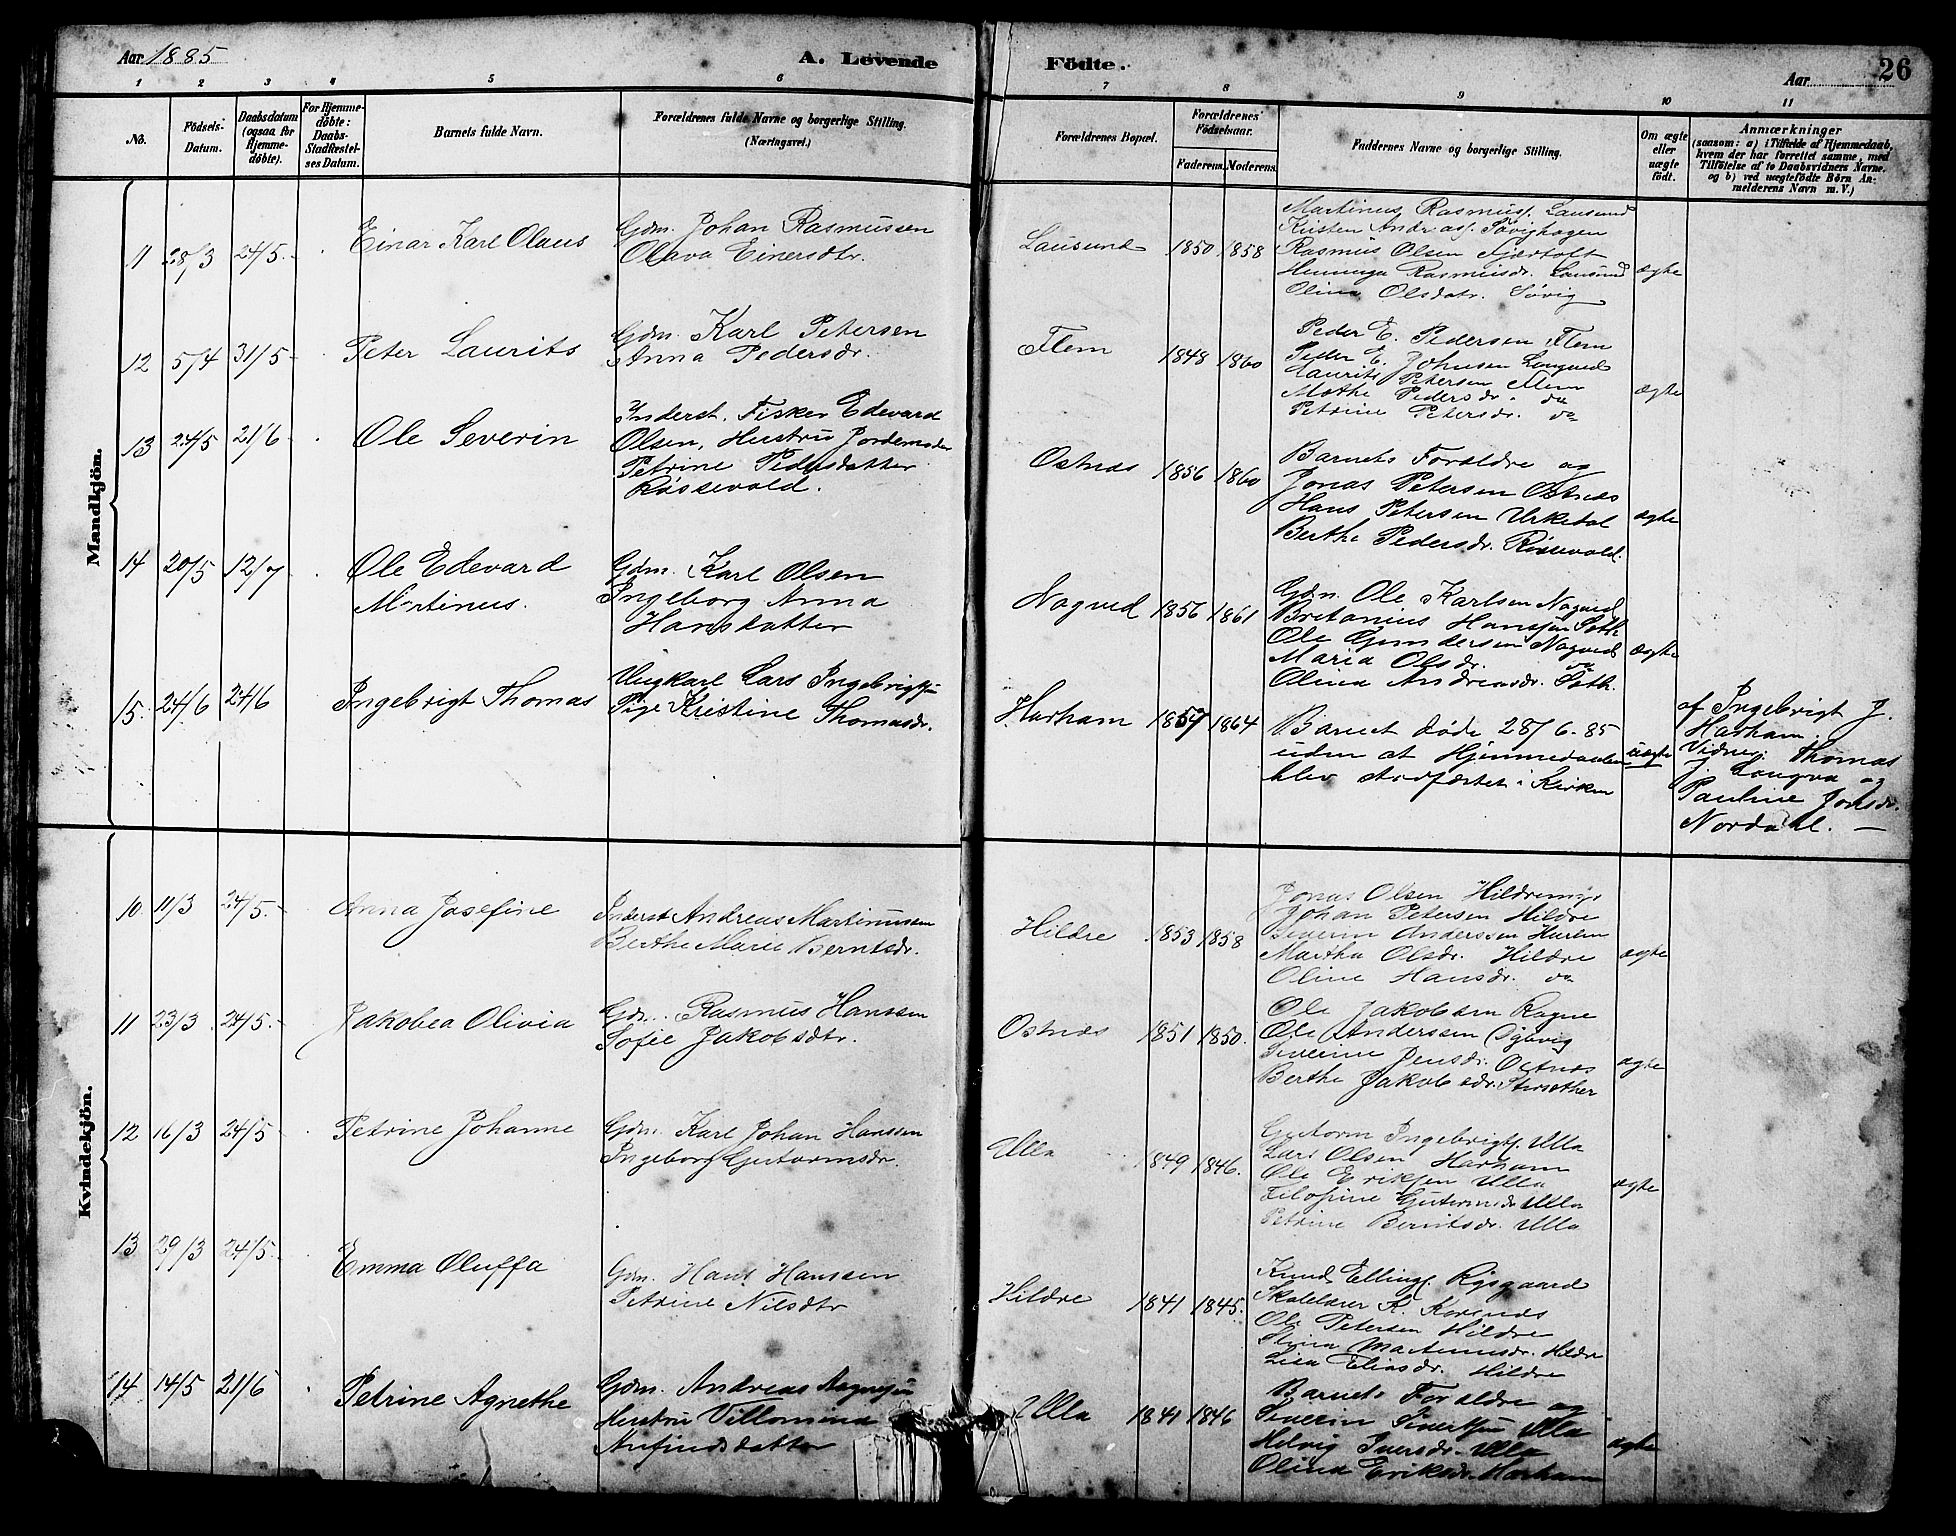 Aar 1885
A. Levende Födte.
Aar 26
1 2 3 4 5 6 7 8 9 10 11
No.
Födsels-Datum.
Daabsdatum (ogsaa for Hjemme-döbte).
For Hjemme-döbte: Daabs-Stadfæstel-ses Datum.
Barnets fulde Navn.
Forældrenes fulde Navne og borgerlige Stilling. (Næringsvei.)
Forældrenes Bopæl.
Forældrenes Födselsaar.
Faderens. Moderens.
Faddernes Navne og borgerlige Stilling.
Om ægte eller uægte födt.
Anmærkninger
(saasom: a) i Tilfælde af Hjemmedaab, hvem der har forrettet samme, med Tilföielse af to Daabsvidners Navne. og b) ved uægtefödte Börn An-melderens Navn m. V.)
Mandkjön.
11 28/3 24/5
Einar Karl Olaus
Gdm. Johan Rasmussen
Olava Einersdtr.
Lausund 1850 1858
Martinus Rasmuss. Lausund
Kristen Andreass. Søvighagen
Rasmus Olsen Fjærtoft
Henninga Rasmusdr. Lausund
Olina Olsdatr. Søvig
ægte
12 5/4 31/5
Peter Laurits
Gdm. Karl Petersen
Anna Pedersdr.
Flem 1848 1860
Peder E. Pedersen Flem
Peder E. Johnsen Longved
Laurits Petersen Flem
Mathe Pedersdr. do
Petrine Petersdr. do
ægte
13 24/5 21/6
Ole Severin
Inderst. Fisker Edevard
Olsen, Hustru Jordemoder
Petrine Pedersdatter
Røssevold.
Ostnes 1856 1860
Barnets Forældre og
Jonas Petersen Ostnes
Hans Petersen Urkedal
Berthe Pedersdr. Røssevold.
ægte
14 20/5 12/7
Ole Edevard
Martinus.
Gdm. Karl Olsen
Ingeborg Anna
Hansdatter
Nogved 1856 1861
Gdm. Ole Karlsen Nogved
Britanius Hanssen
Ole Gundersen Nogved
Maria Olsdr. do
Olina Andreasdr.
ægte
15. 24/6 24/6
Ingebrigt Thomas
Ungkarl Lars Ingebrigtsen
Pige Kristine Thomasdr.
Harham 1857 1864
Barnet døde 28/6-85
uden at Hjemmedaaben
blev stadfæstet i Kirken
uægte
af Ingebrigt J.
Harham.
Vidner: Thomas
J. Longva og
Pauline Jonsdr.
Nordahl. —
Kvindekjön.
10. 11/3 24/5
Anna Josefine
Inderst Andreas Martinussen
Berthe Marie Berntsdr.
Hildre 1853 1858
Jonas Olsen Hildremyr
Johan Petersen Hildre
Severin Anderssen
Martha Olsdr. Hildre
Oline Hansdr. do
ægte
11 23/3 24/5
Jakobea Olivia
Gdm. Rasmus Hanssen
Sofie Jakobsdtr.
Ostnes 1851 1850.
Ole Jakobsen Rogne
Ole Anderssen
Severine Jensdr. Ostnes
Berthe Jakobsdr.
ægte
12 16/3 24/5
Petrine Johanne
Gdm. Karl Johan Hanssen
Ingeborg Gutormsdr.
Ulla 1849 1846.
Gutorm Ingebrigts. Ulla
Lars Olsen Harham
Ole Eriksen Ulla
Gutormsdr Ulla
Petrine Berntsdr. Ulla
ægte
13 29/3 24/5
Emma Oluffa
Gdm. Hans Hanssen
Petrine Nilsdtr
Hildre 1841 1845.
Knud Ellings. Rysgaard
Skolelærer K. Korsnes
Ole Petersen Hildre
Stina Martinusdr. Hildre
Eliasdr. Hildre
14 14/5 21/6
Petrine Agnethe
Gdm. Andreas
Hustru Villomina
Anfindsdatter
Ulla 1841 1846
Barnets Forældre og
Severin Sivertsen Ulla
Helvig Iversdr. Ulla
Olina Eriksdr. Harham
ægte